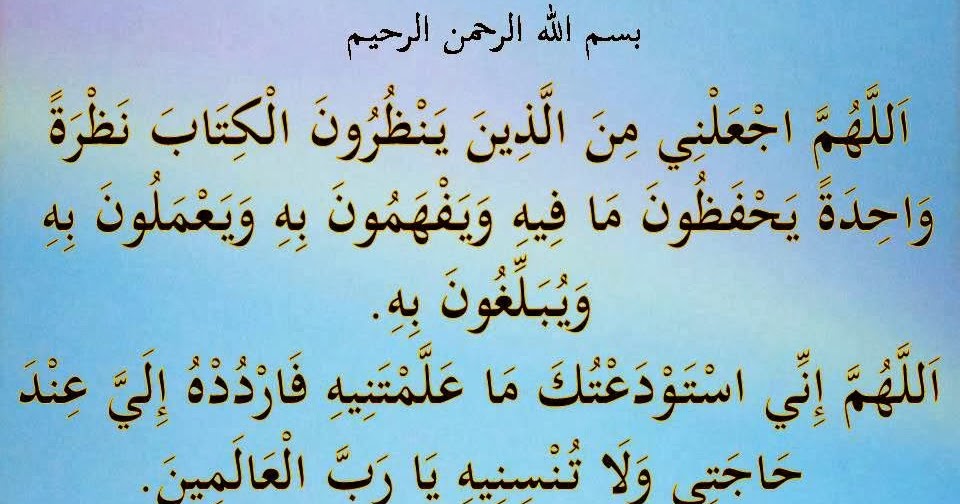 بسم الله الرحمن الرحيم
اَللَّهُمَّ اجْعَلْنِي مِنَ الَّذِينَ يَنْظُرُونَ الْكِتَابَ نَظْرَةً
وَاحِدَةً يَحْفَظُونَ مَا فِيهِ وَيَفْهَمُونَ بِهِ وَيَعْمَلُونَ بِهِ
وَيُبَلِّغُونَ بِهِ.
اَللَّهُمَّ إِنِّي اسْتَوْدَعْتُكَ مَا عَلَّمْتَنِيهِ فَارْدُدْهُ إِلَيَّ عِنْدَ
حَاجَتِي وَلَا تُنْسِنِيهِ يَا رَبَّ الْعَالَمِينَ.